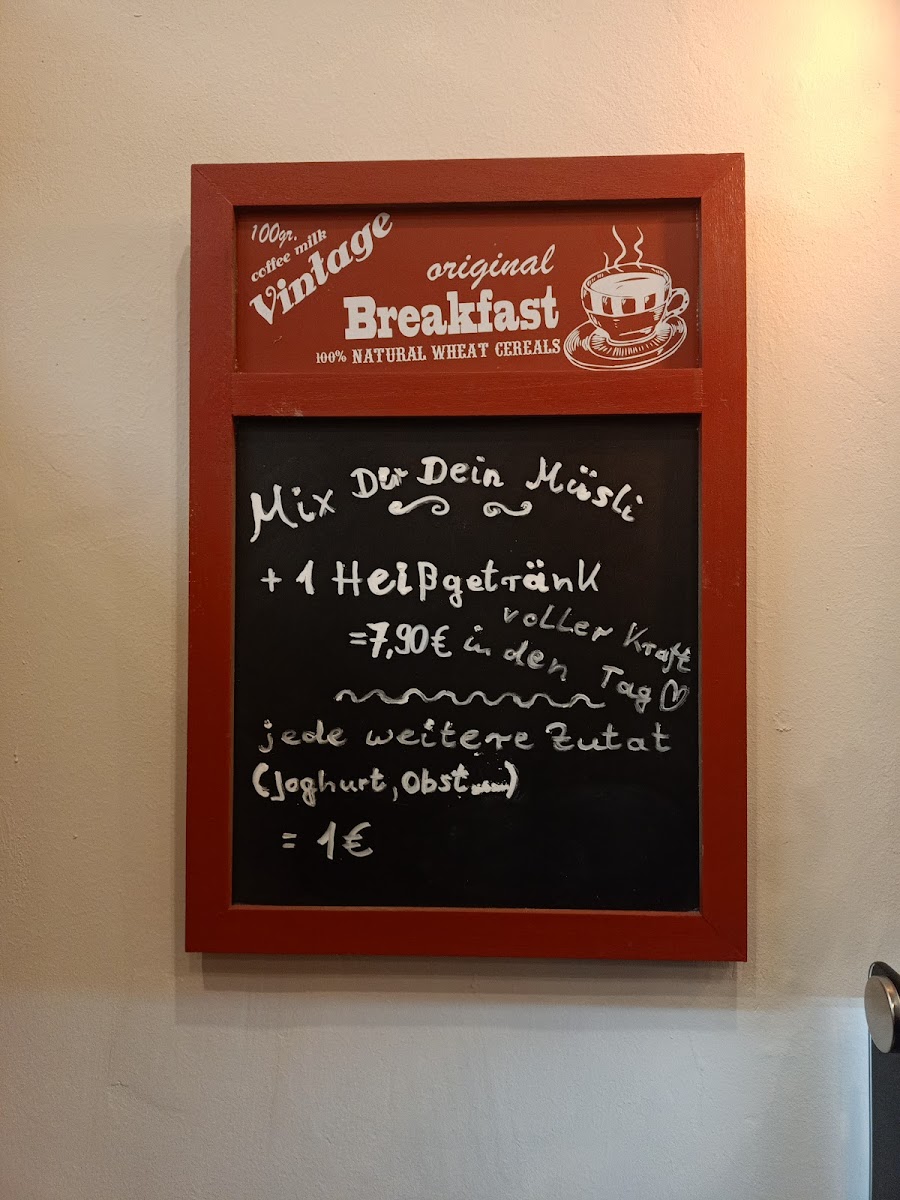 100gr.
coffee milk
Vintage
original
Breakfast
100% NATURAL WHEAT CEREALS
Mix Dir Dein Müsli
+ 1 Heißgetränk
= 7,90 €
voller Kraft
in den Tag ♡
jede weitere Zutat
(Joghurt, Obst ....)
= 1 €